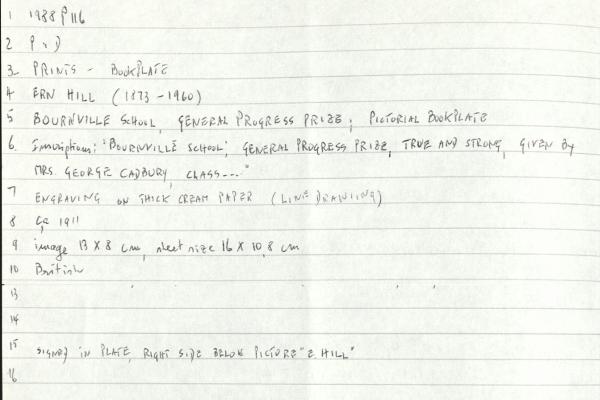 1 1988 P 116
2 P & D
3 PRINTS - BOOKPLATE
4 ERN HILL (1873 - 1960)
5 BOURNVILLE SCHOOL, GENERAL PROGRESS PRIZE; PICTORIAL BOOKPLATE
6. Inscriptions: "BOURNVILLE SCHOOL", GENERAL PROGRESS PRIZE, TRUE AND STRONG, GIVEN BY
MRS. GEORGE CADBURY, CLASS...."
7 ENGRAVING ON THICK CREAM PAPER (LINE DRAWING)
8 Ca 1911
9 image 13 X 8 cm, sheet size 16 X 10,8 cm
10 British
13
14
15 SIGNED IN PLATE, RIGHT SIDE BELOW PICTURE "E. HILL"
16